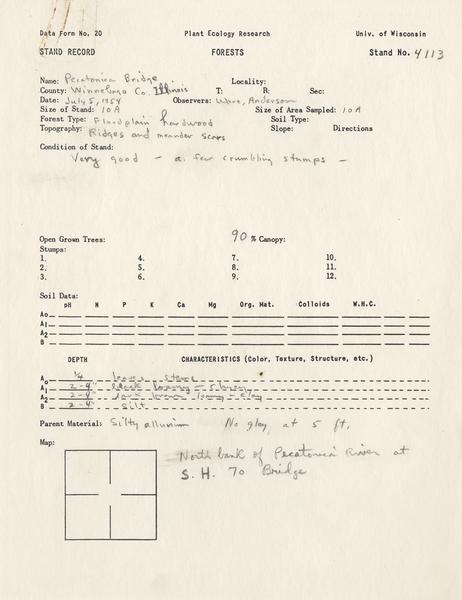 Data Form No. 20 Plant Ecology Research Univ. of Wisconsin
STAND RECORD FORESTS Stand No. 4113
Name: Pecatonica Bridge Locality:
County: Winnebago Co. Illinois T: R: Sec:
Date: July 5, 1954 Observers: Ware, Anderson
Size of Stand: 10 A Size of Area Sampled: 10 A
Forest Type: Floodplain hardwood Soil Type:
Topography: Ridges and meander scars Slope: Directions
Condition of Stand:
Very good - a few crumbling stumps -
Open Grown Trees: 90 % Canopy:
Stumps:
1. 4. 7. 10.
2. 5. 8. 11.
3. 6. 9. 12.
Soil Data:
pH N P K Ca Mg Org. Mat. Colloids W.H.C.
Ao
A1
A2
B
DEPTH CHARACTERISTICS (Color, Texture, Structure, etc.)
Ao 1/4 leaves stems
A1 2-4" black loamy -
A2 2-4" dark brown loamy - clay
B 2-4" Silt
Parent Material: Silty alluvium No gley at 5 ft.
Map:
North bank of Pecatonica River at
S. H. 70 Bridge